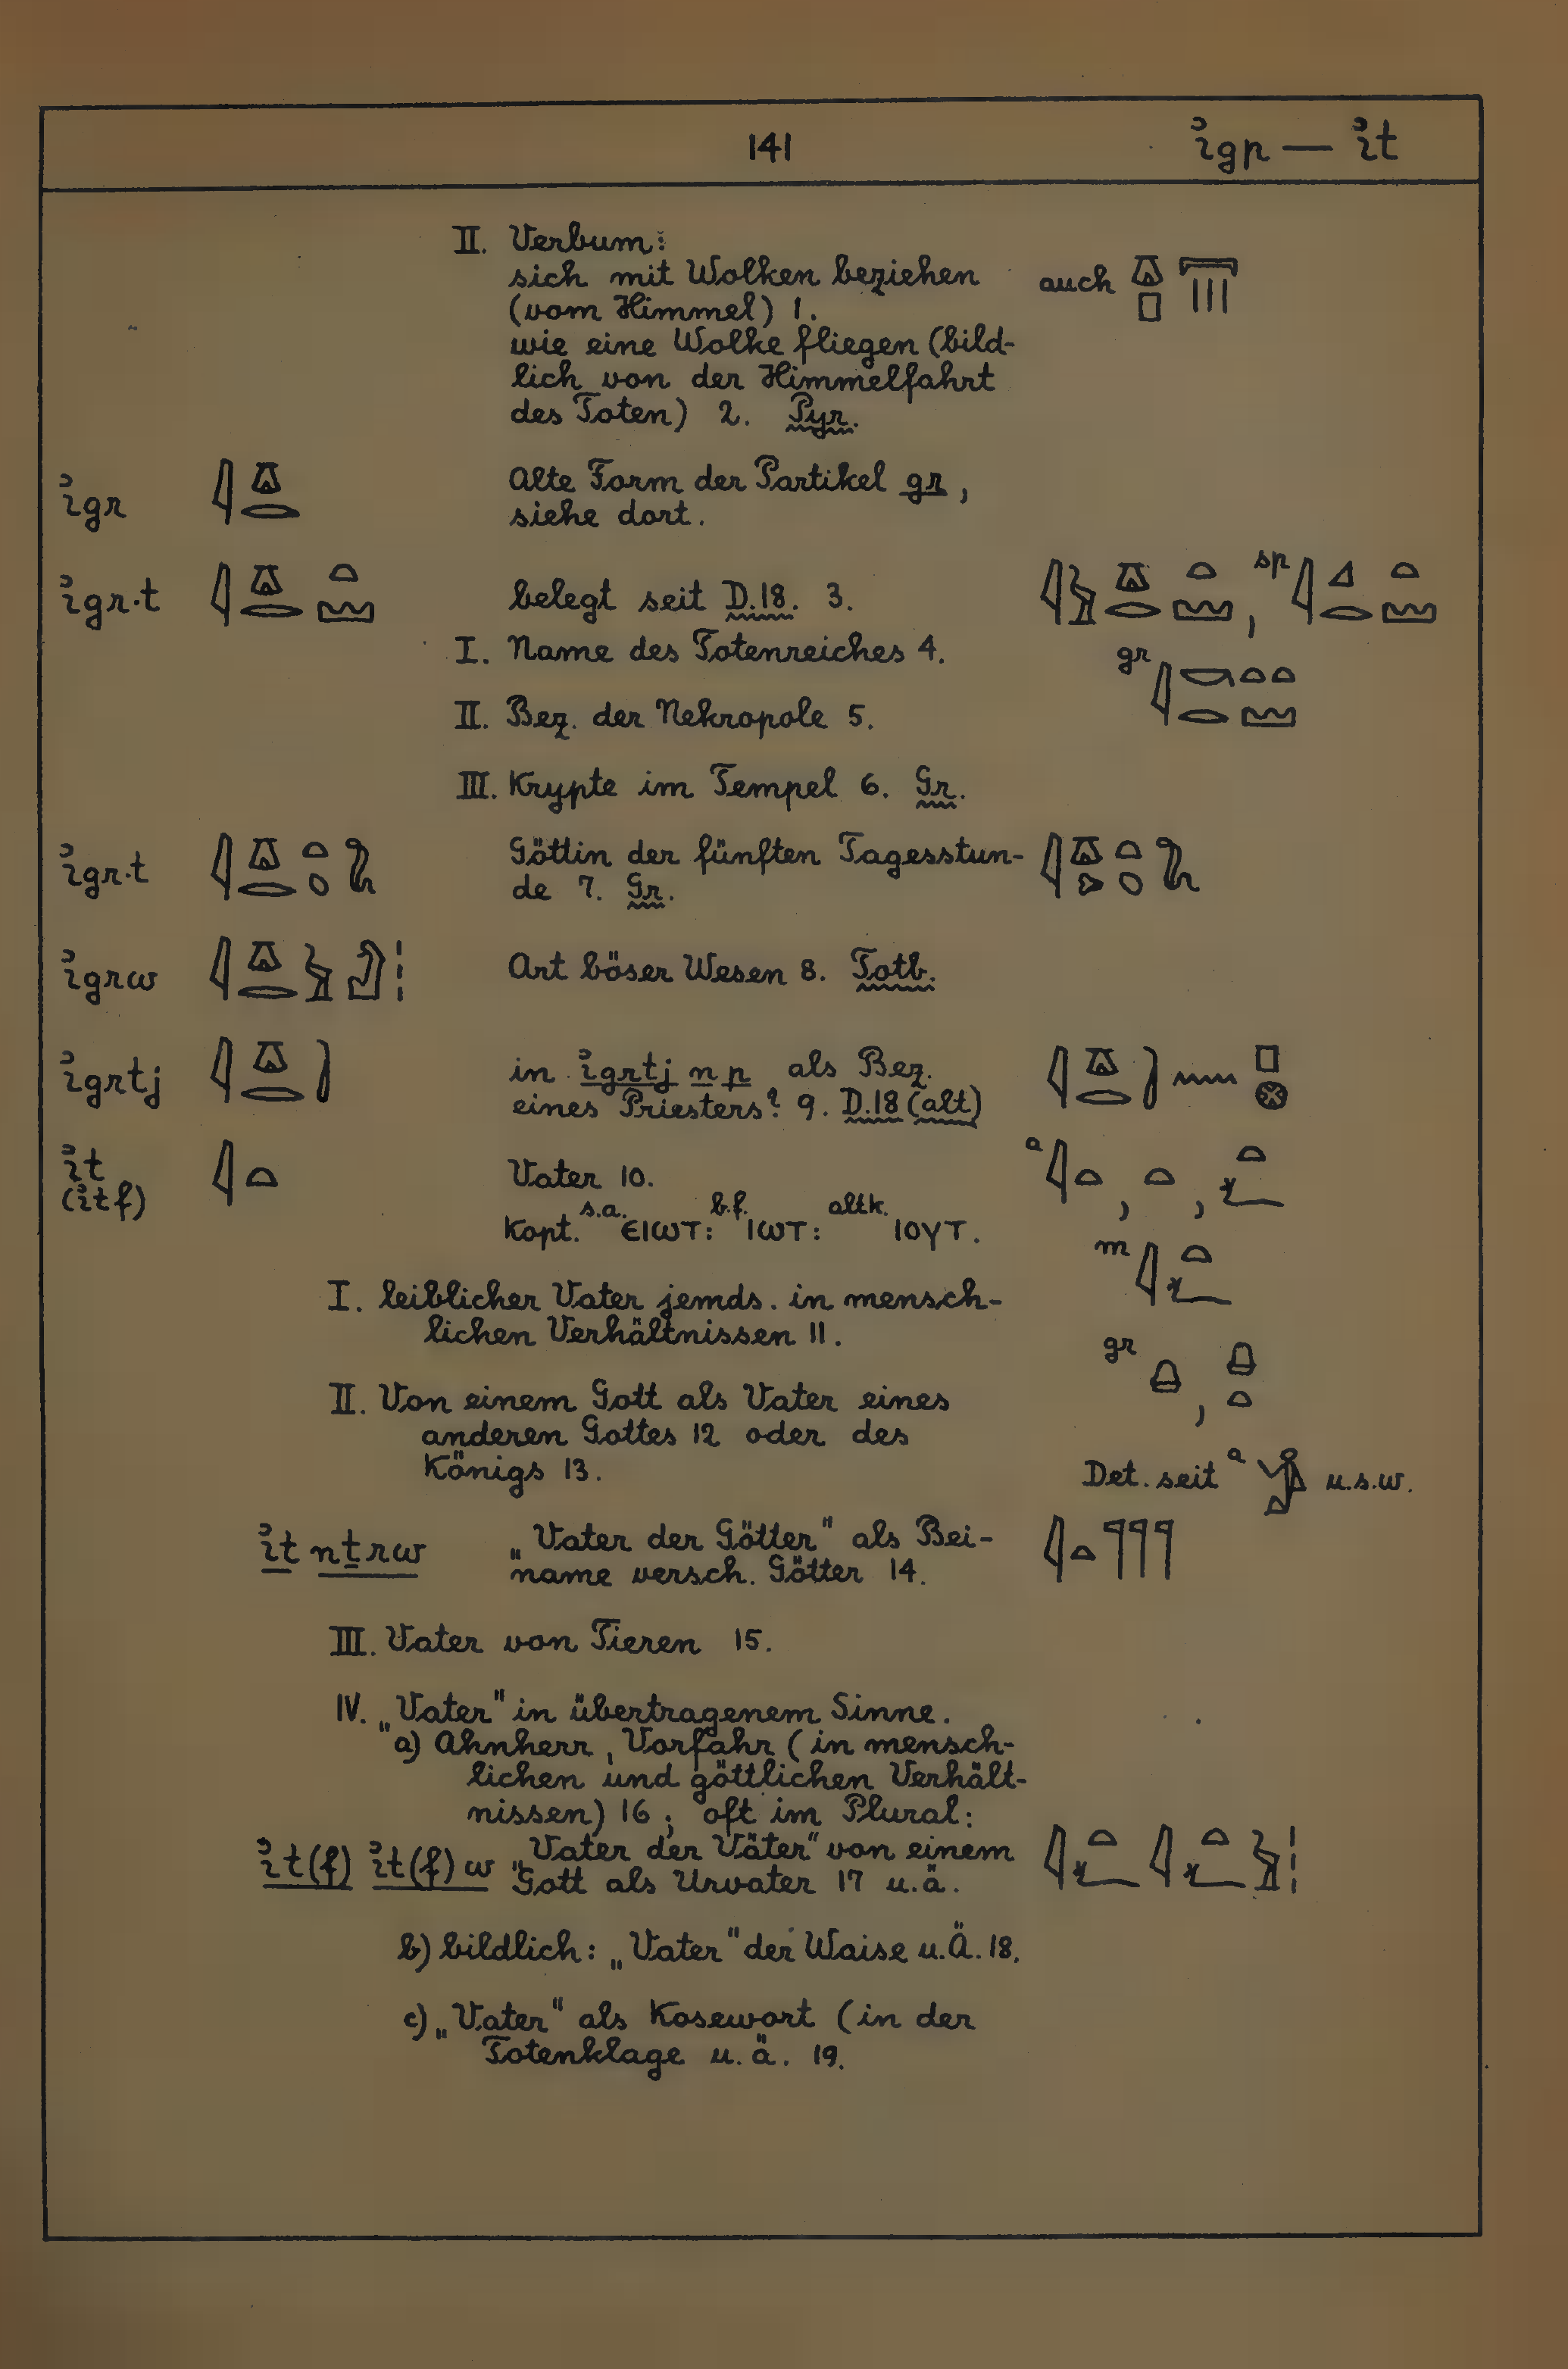 141 ꞽgp — ꞽt
II. Verbum:
sich mit Wolken beziehen auch 𓎼𓊪𓇲
(vom Himmel) 1.
wie eine Wolke fliegen (bild-
lich von der Himmelfahrt
des Toten) 2. Pyr.
ꞽgr 𓇋𓎼𓂋 Alte Form der Partikel gr,
siehe dort.
ꞽgr·t 𓇋𓎼𓂋𓏏𓈉 belegt seit D.18. 3. 𓇋𓅱𓎼𓂋𓏏𓈉, sp 𓇋𓈎𓂋𓏏𓈉
I. Name des Totenreiches 4. gr 𓇋𓎡𓂋𓏏𓏏𓈉
II. Bez. der Nekropole 5.
III. Krypte im Tempel 6. Gr.
ꞽgr·t 𓇋𓎼𓂋𓏏𓆇𓆗 Göttin der fünften Tagesstun-
de 7. Gr.
ꞽgrw 𓇋𓎼𓂋𓅱 Art böser Wesen 8. Totb.
ꞽgrtj 𓇋𓎼𓂋 in ꞽgrtj n p als Bez. 𓇋𓎼𓂋 𓈖 𓊪𓊖
eines Priesters? 9. D.18 (alt)
ꞽt 𓇋𓏏 Vater 10. a 𓇋𓏏, 𓏏, 𓏏𓆑
(ꞽtf)
Kopt. s.a. ⲉⲓⲱⲧ: b.f. ⲓⲱⲧ: altk. ⲓⲟⲩⲧ.
m 𓇋𓏏𓆑
I. leiblicher Vater jemds. in mensch-
lichen Verhältnissen 11.
gr
II. Von einem Gott als Vater eines
anderen Gottes 12 oder des
Königs 13. Det. seit a u.s.w.
ꞽt nṯrw „Vater der Götter" als Bei- 𓇋𓏏𓊹𓊹𓊹
name versch. Götter 14.
III. Vater von Tieren 15.
IV. „Vater" in übertragenem Sinne.
a) Ahnherr, Vorfahr (in mensch-
lichen und göttlichen Verhält-
nissen) 16; oft im Plural:
ꞽt(f) ꞽt(f)w „Vater der Väter" von einem 𓇋𓏏𓆑𓇋𓏏𓆑𓅱𓏪
Gott als Urvater 17 u.ä.
b) bildlich: „Vater" der Waise u.Ä. 18.
c) „Vater" als Kosewort (in der
Totenklage u.ä. 19.